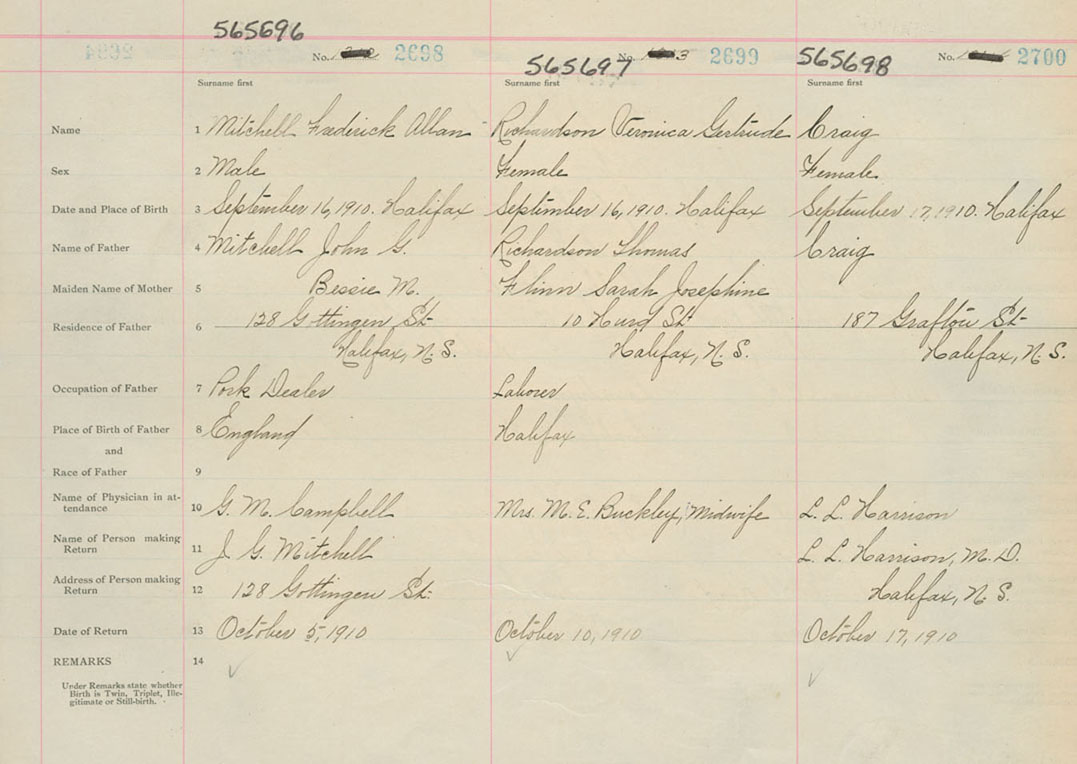 565696
No. 2698
565697
No. 3 2699
565698
No. 2700
Surname first
Surname first
Surname first
Name 1 Mitchell Frederick Allan Richardson Veronica Gertrude Craig
Sex 2 Male Female Female
Date and Place of Birth 3 September 16, 1910. Halifax September 16, 1910. Halifax September 17, 1910. Halifax
Name of Father 4 Mitchell John G. Richardson Thomas Craig
Maiden Name of Mother 5 Bessie M. Flinn Sarah Josephine
Residence of Father 6 128 Gottingen St. 10 Hurd St. 187 Grafton St.
Halifax, N.S. Halifax, N.S. Halifax, N.S.
Occupation of Father 7 Pork Dealer Laborer
Place of Birth of Father 8 England Halifax
and
Race of Father 9
Name of Physician in at-
tendance 10 G. M. Campbell Mrs. M. E. Buckley, Midwife L. L. Harrison
Name of Person making
Return 11 J. G. Mitchell L. L. Harrison, M.D.
Address of Person making
Return 12 128 Gottingen St. Halifax, N.S.
Date of Return 13 October 5, 1910 October 10, 1910 October 17, 1910
REMARKS 14
Under Remarks state whether
Birth is Twin, Triplet, Ille-
gitimate or Still-birth.